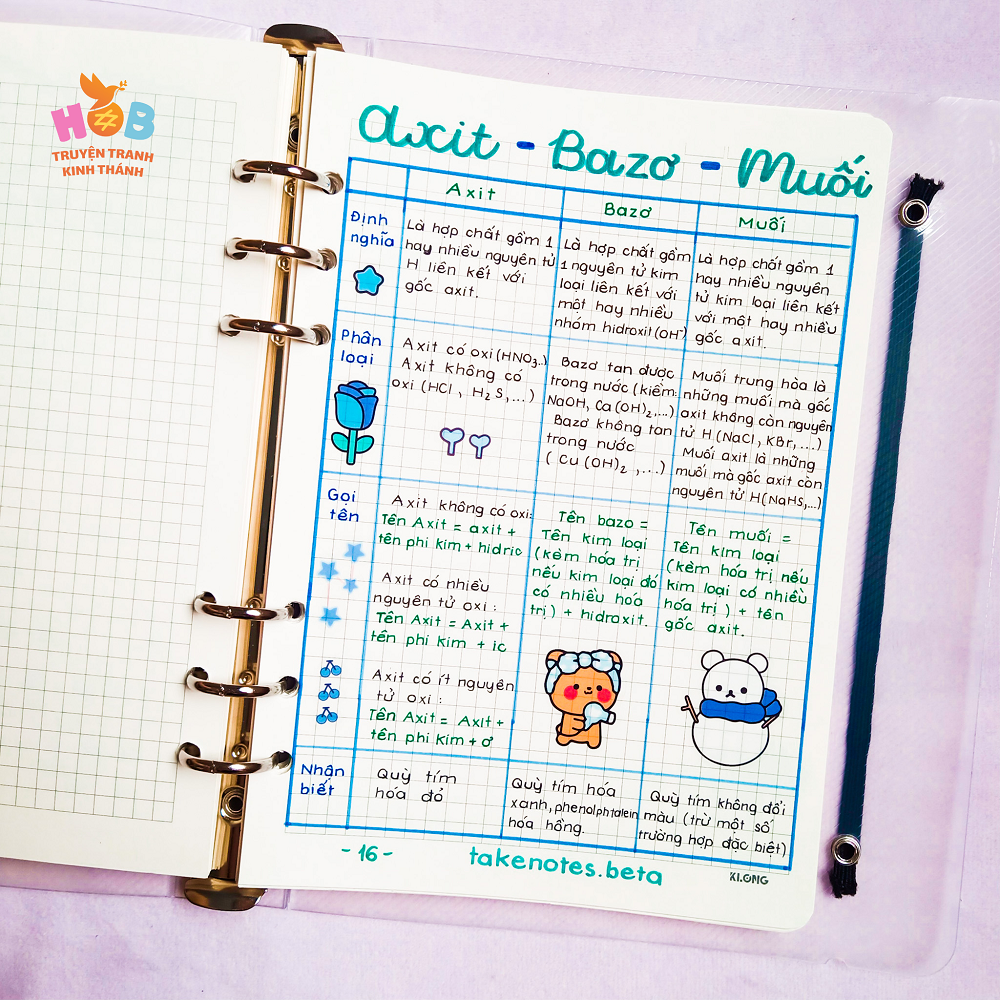 HB
TRUYỆN TRANH
KINH THÁNH
Axit - Bazơ - Muối
Axit
Bazơ
Muối
Định
nghĩa
Là hợp chất gồm 1
hay nhiều nguyên tử
H liên kết với
gốc axit.
Là hợp chất gồm
1 nguyên tử kim
loại liên kết với
một hay nhiều
nhóm hidroxit (OH⁻)
Là hợp chất gồm 1
hay nhiều nguyên
tử kim loại liên kết
với một hay nhiều
gốc axit.
Phân
loại
Axit có oxi (HNO₃..)
Axit không có
oxi (HCl, H₂S,...)
Bazơ tan được
trong nước (kiềm:
NaOH, Ca(OH)₂,...)
Bazơ không tan
trong nước
(Cu(OH)₂,...)
Muối trung hòa là
những muối mà gốc
axit không còn nguyên
tử H (NaCl, KBr,...)
Muối axit là những
muối mà gốc axit còn
nguyên tử H(NaHS,...)
Gọi
tên
Axit không có oxi:
Tên Axit = axit +
tên phi kim + hidric
Axit có nhiều
nguyên tử oxi:
Tên Axit = Axit +
tên phi kim + ic
Axit có ít nguyên
tử oxi:
Tên Axit = Axit +
tên phi kim + ơ
Tên bazơ =
Tên kim loại
(kèm hóa trị
nếu kim loại đó
có nhiều hoá
trị) + hidroxit.
Tên muối =
Tên kim loại
(kèm hóa trị nếu
kim loại có nhiều
hóa trị) + tên
gốc axit.
Nhận
biết
Quỳ tím
hóa đỏ
Quỳ tím hóa
xanh, phenolphtalein
hóa hồng.
Quỳ tím không đổi
màu (trừ một số
trường hợp đặc biệt)
-16-
takenotes.beta
KLONG